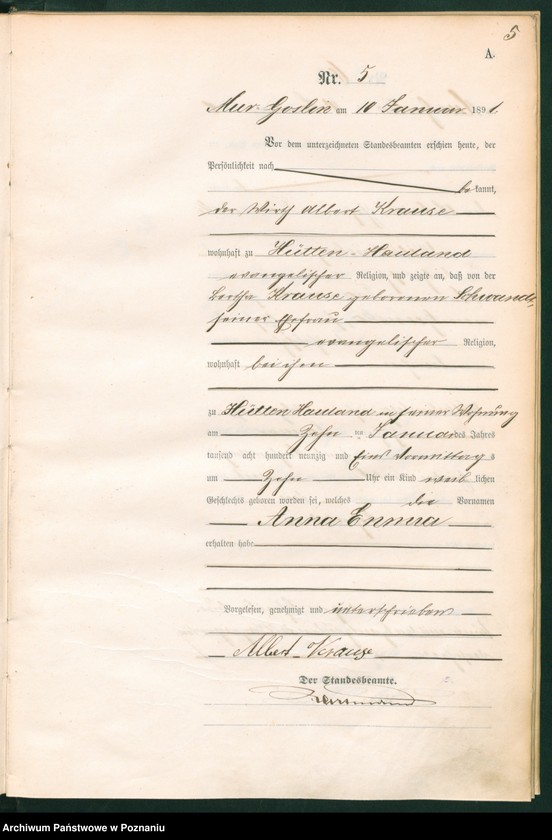 5
A.
Nr. 5
Mur. Goslin am 10 Januar 1891.
Vor dem unterzeichneten Standesbeamten erschien heute, der
Persönlichkeit nach
bekannt,
der Wirth Albert Krause
wohnhaft zu Hütten-Hauland
evangelischer Religion, und zeigte an, daß von der
Bertha Krause geborenen Schwandt,
seiner Ehefrau
evangelischer Religion,
wohnhaft bei ihm
zu Hütten Hauland in seiner Wohnung
am Zehn ten Januar des Jahres
tausend acht hundert neunzig und Eins Vormittags
um Zehn Uhr ein Kind weib lichen
Geschlechts geboren worden sei, welches die Vornamen
Anna Emma
erhalten habe
Vorgelesen, genehmigt und unterschrieben
Albert Krause
Der Standesbeamte.
Archiwum Państwowe w Poznaniu